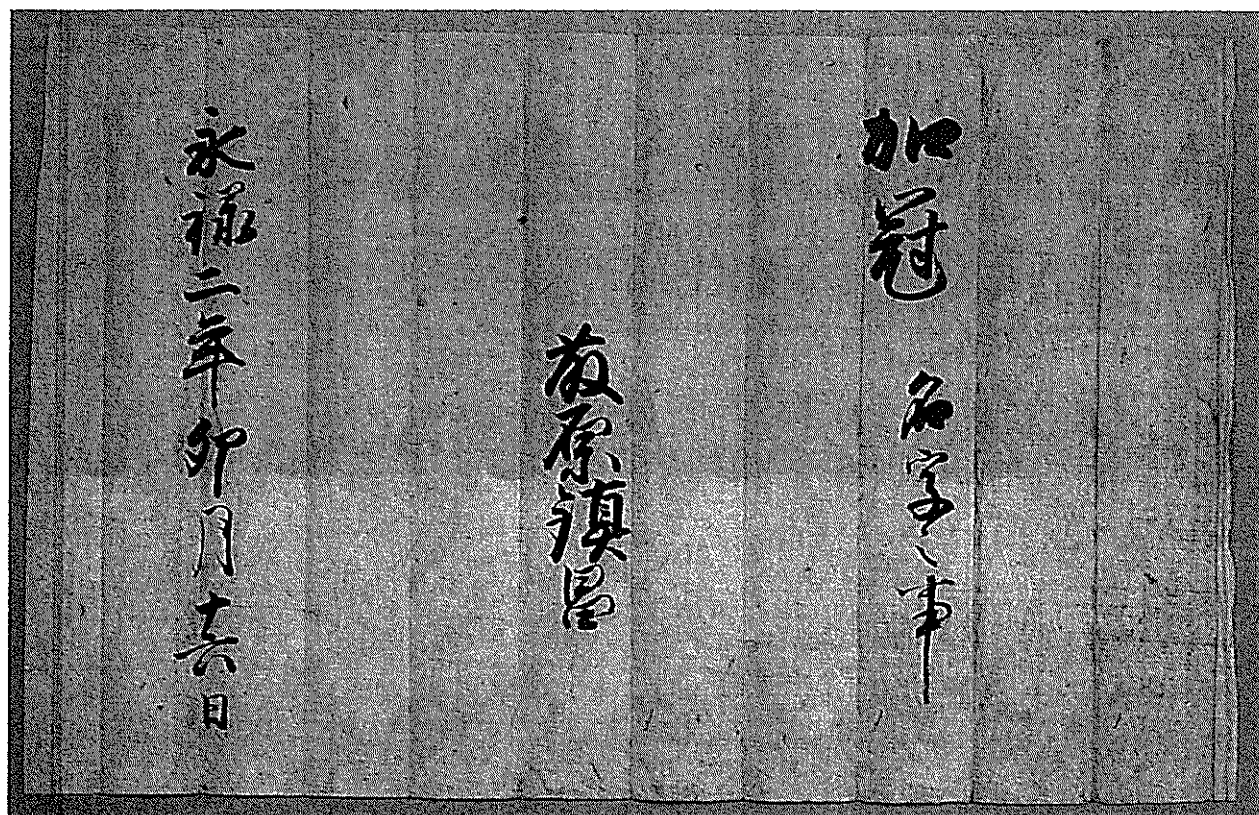 加冠 名字之事
藤原鎮昌
永禄二年卯月十六日